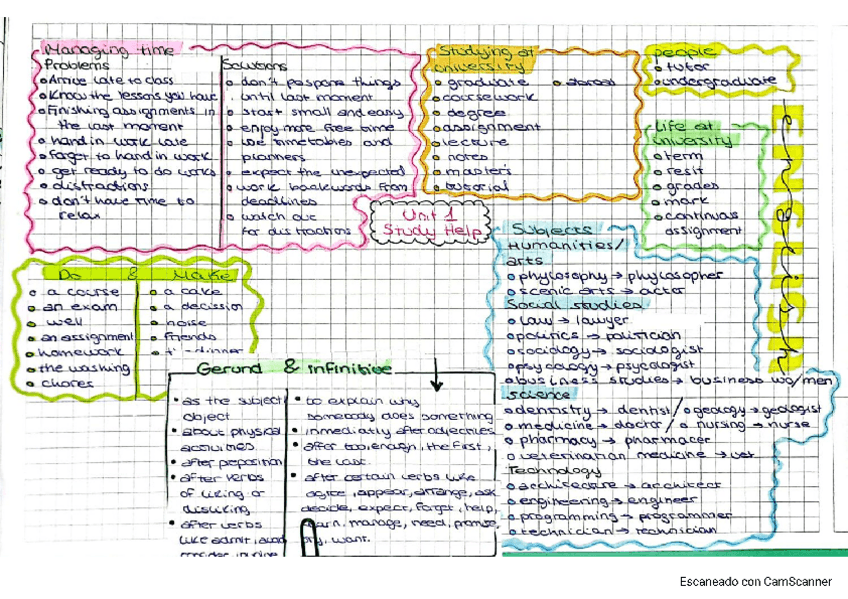 Managing time
Problems
Arrive late to class
Know the lessons you have
Finishing assignments in
the last moment
hand in work late
Foget to hand in work
get ready to do works
distractions
don't have time to
relax
Solutions
don't pospone things
until last moment
start small and easy
enjoy more free time
use timetables and
planners
expect the unexpected
work backwords from
deadlines
watch out
for distractions
Studying at
university
graduate
coursework
degree
assignment
lecture
notes
master's
tutorial
people
tutor
undergraduate
Life at
university
term
resit
grades
mark
continuas
assignment
English
Unit 1
Study Help
Do & Make
a course
an exam
well
an assignment
homework
the washing
chores
a cake
a decission
noise
friends
dinner
Subjects
Humanities/
arts
phylosophy → phylosopher
scenic arts → actor
Social studies
law → lawyer
politics → politician
sociology → sociologist
psycology → psycologist
business studies → business wo/men
science
dentistry → dentist / geology → geologist
medicine → doctor / nursing → nurse
pharmacy → pharmacer
veterinarian medicine → vet
Technology
architecture → architect
engineering → engineer
programming → programmer
technician → technician
Gerund & infinitive
as the subject/
object
about physical
activities
after preposition
after verbs
of liking or
disliking
after verbs
like admit, avoid
to explain why
somebody does something
inmediatly after adjectives
after too, enough, the first,
the last.
after certain verbs like
agree, appear, arrange, ask
decide, expect, forget, help,
learn, manage, need, promise,
try, want.
Escaneado con CamScanner